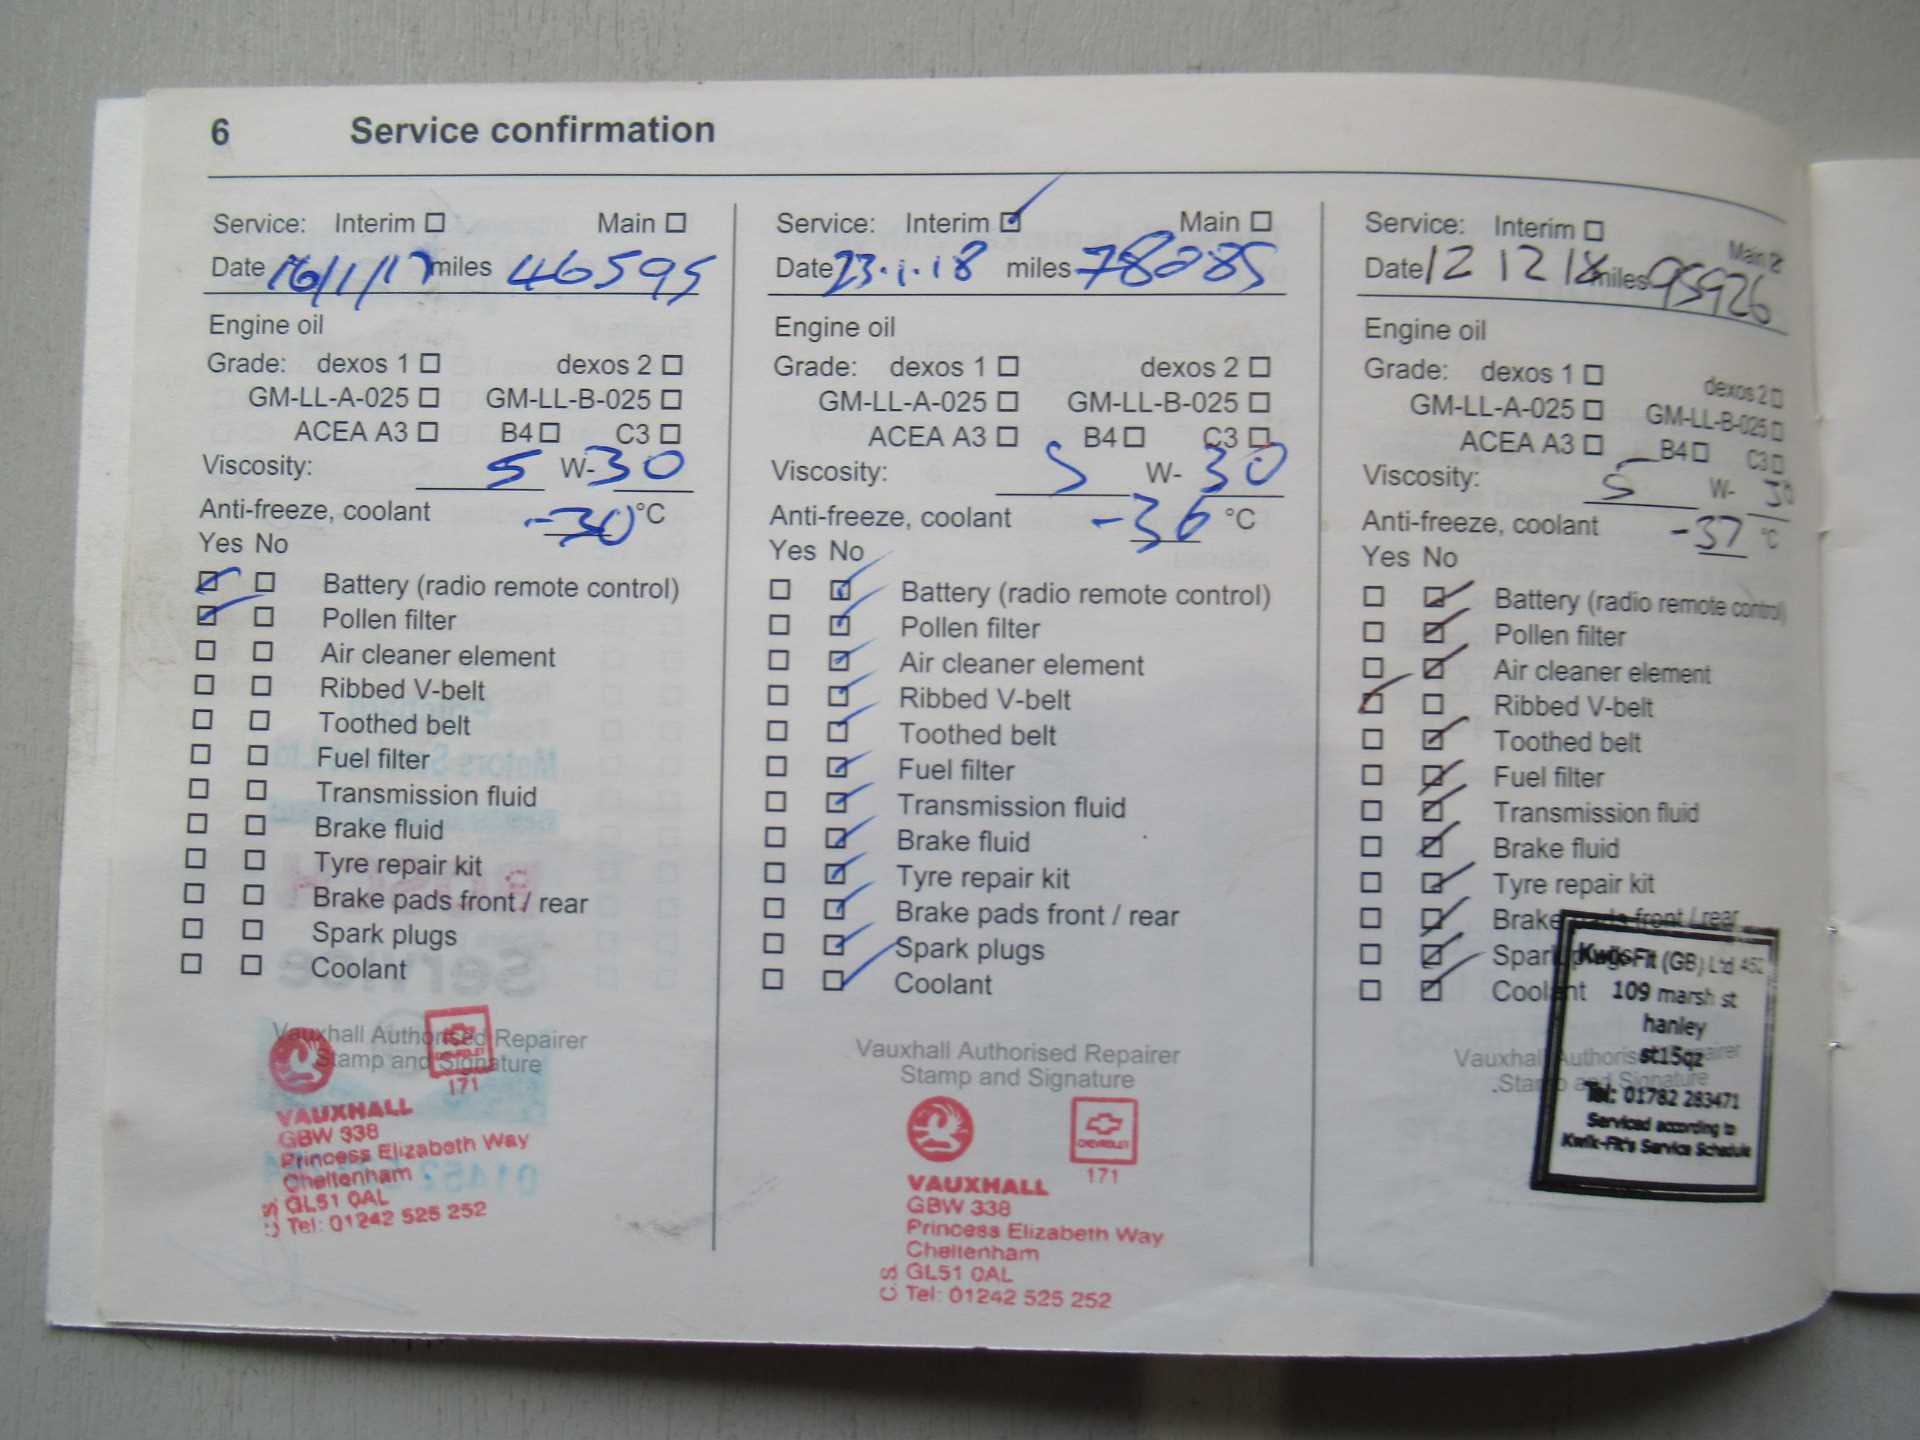 6 Service confirmation
Service: Interim Main
Date 16/1/17 miles 46595
Engine oil
Grade: dexos 1 dexos 2
GM-LL-A-025 GM-LL-B-025
ACEA A3 B4 C3
Viscosity: 5 W-30
Anti-freeze, coolant -30 °C
Yes No
Battery (radio remote control)
Pollen filter
Air cleaner element
Ribbed V-belt
Toothed belt
Fuel filter
Transmission fluid
Brake fluid
Tyre repair kit
Brake pads front / rear
Spark plugs
Coolant
Vauxhall Authorised Repairer
Stamp and Signature
CHEVROLET
171
VAUXHALL
GBW 338
Princess Elizabeth Way
Cheltenham
GL51 0AL
Tel: 01242 525 252
Service: Interim Main
Date 23.1.18 miles 78085
Engine oil
Grade: dexos 1 dexos 2
GM-LL-A-025 GM-LL-B-025
ACEA A3 B4 C3
Viscosity: 5 W-30
Anti-freeze, coolant -36 °C
Yes No
Battery (radio remote control)
Pollen filter
Air cleaner element
Ribbed V-belt
Toothed belt
Fuel filter
Transmission fluid
Brake fluid
Tyre repair kit
Brake pads front / rear
Spark plugs
Coolant
Vauxhall Authorised Repairer
Stamp and Signature
CHEVROLET
171
VAUXHALL
GBW 338
Princess Elizabeth Way
Cheltenham
GL51 0AL
Tel: 01242 525 252
Service: Interim Main
Date 12 12 18 miles 95926
Engine oil
Grade: dexos 1 dexos 2
GM-LL-A-025 GM-LL-B-025
ACEA A3 B4 C3
Viscosity: 5 W-30
Anti-freeze, coolant -37 °C
Yes No
Battery (radio remote control)
Pollen filter
Air cleaner element
Ribbed V-belt
Toothed belt
Fuel filter
Transmission fluid
Brake fluid
Tyre repair kit
Brake pads front / rear
Spark plugs
Coolant
Vauxhall Authorised Repairer
Stamp and Signature
Kwik-Fit (GB) Ltd 452
109 marsh st
hanley
st15qz
Tel: 01782 283471
Serviced according to
Kwik-Fit's Service Schedule